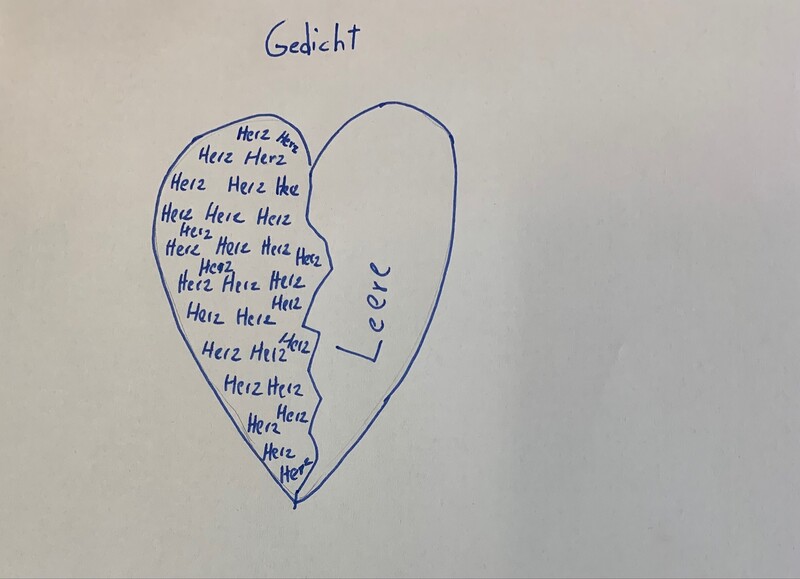 Gedicht
Herz Herz
Herz Herz
Herz Herz Herz
Herz Herz Herz
Herz
Herz Herz Herz Herz
Herz
Herz Herz Herz
Herz
Herz Herz
Herz
Herz Herz
Herz Herz
Herz
Herz
Herz
Herz
Leere